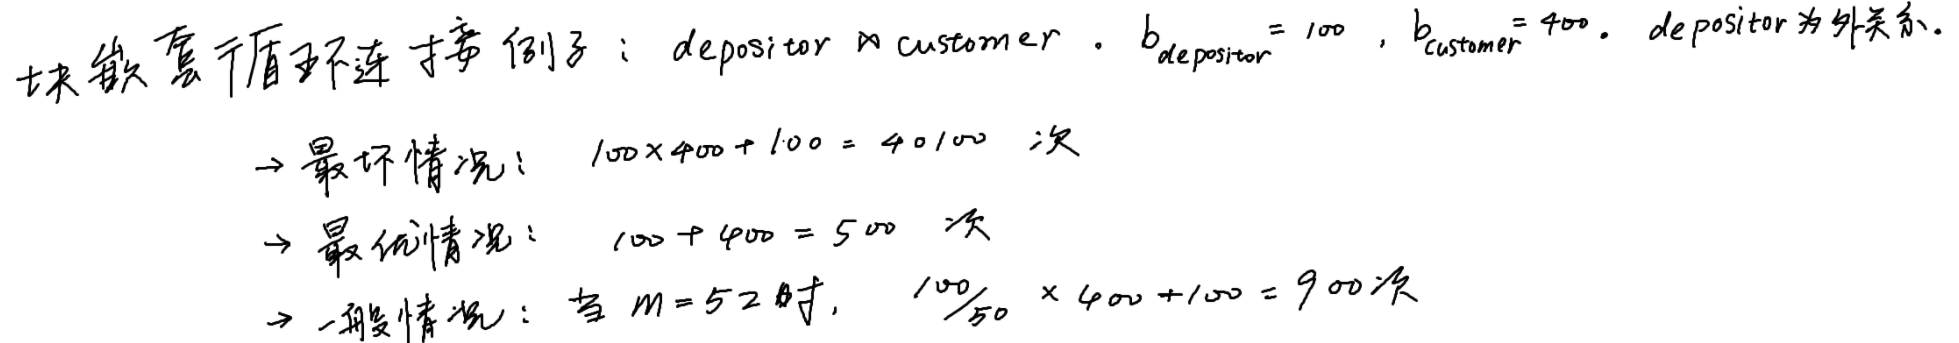 块嵌套循环连接例子：depositor ⋈ customer . b_depositor = 100 , b_customer = 400 . depositor为外关系.
→ 最坏情况： 100×400+100 = 40100 次
→ 最优情况： 100+400 = 500 次
→ 一般情况：当 M=52时, 100/50 × 400+100 = 900次